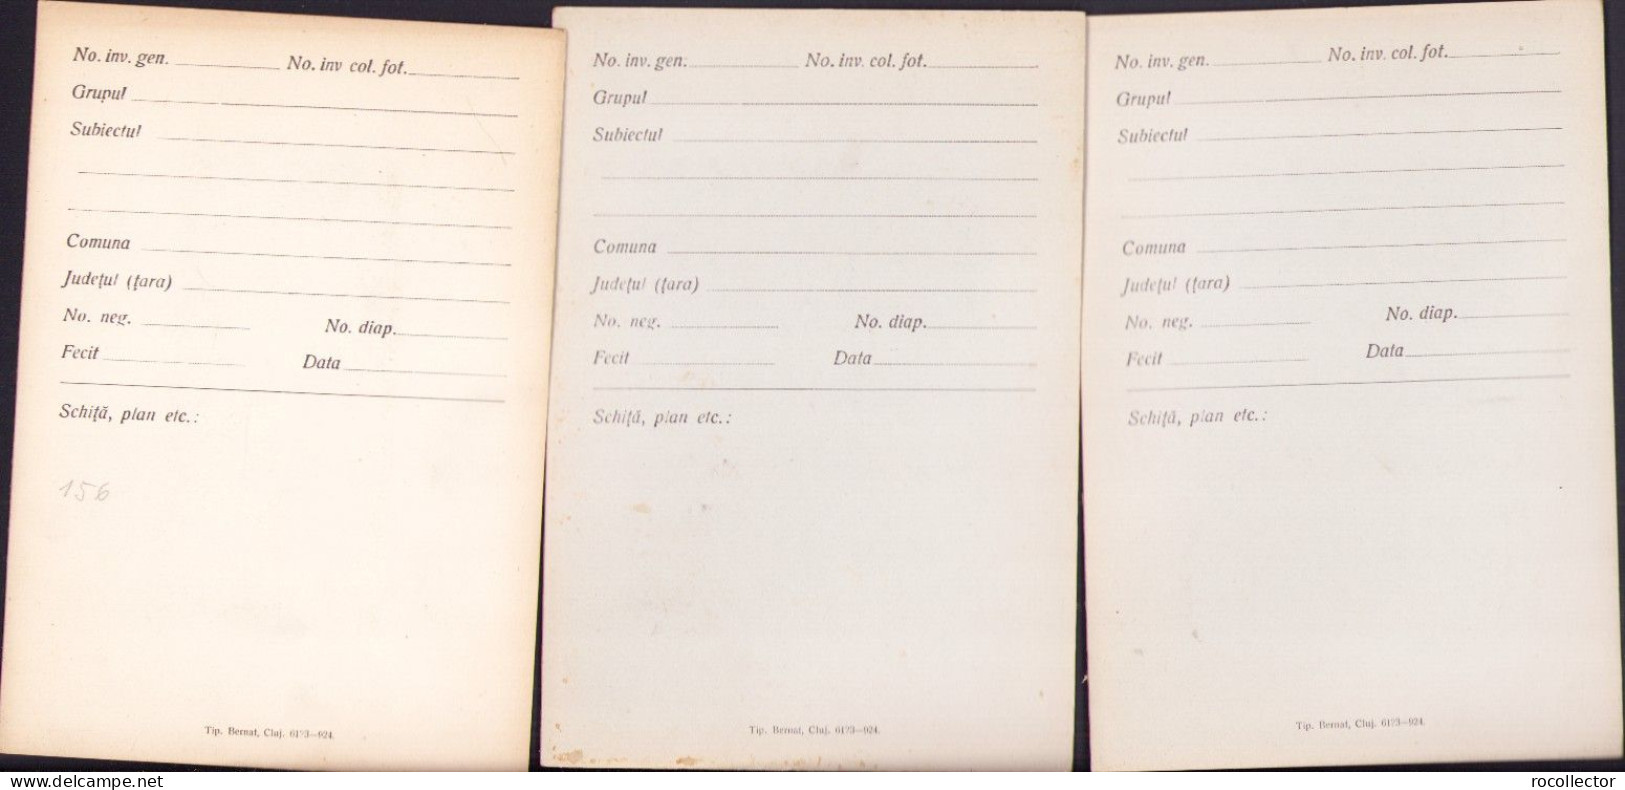 No. inv. gen. No. inv col. fot.
Grupul
Subiectul
Comuna
Județul (țara)
No. neg. No. diap.
Fecit Data
Schiță, plan etc.:
156
Tip. Bernat, Cluj. 6173—924.
No. inv. gen. No. inv. col. fot.
Grupul
Subiectul
Comuna
Județul (țara)
No. neg. No. diap.
Fecit Data
Schiță, plan etc.:
Tip. Bernat, Cluj. 6173—924.
No. inv. gen. No. inv. col. fot.
Grupul
Subiectul
Comuna
Județul (țara)
No. neg. No. diap.
Fecit Data
Schiță, plan etc.:
Tip. Bernat, Cluj. 6173—924.
delcampe.net rocollector